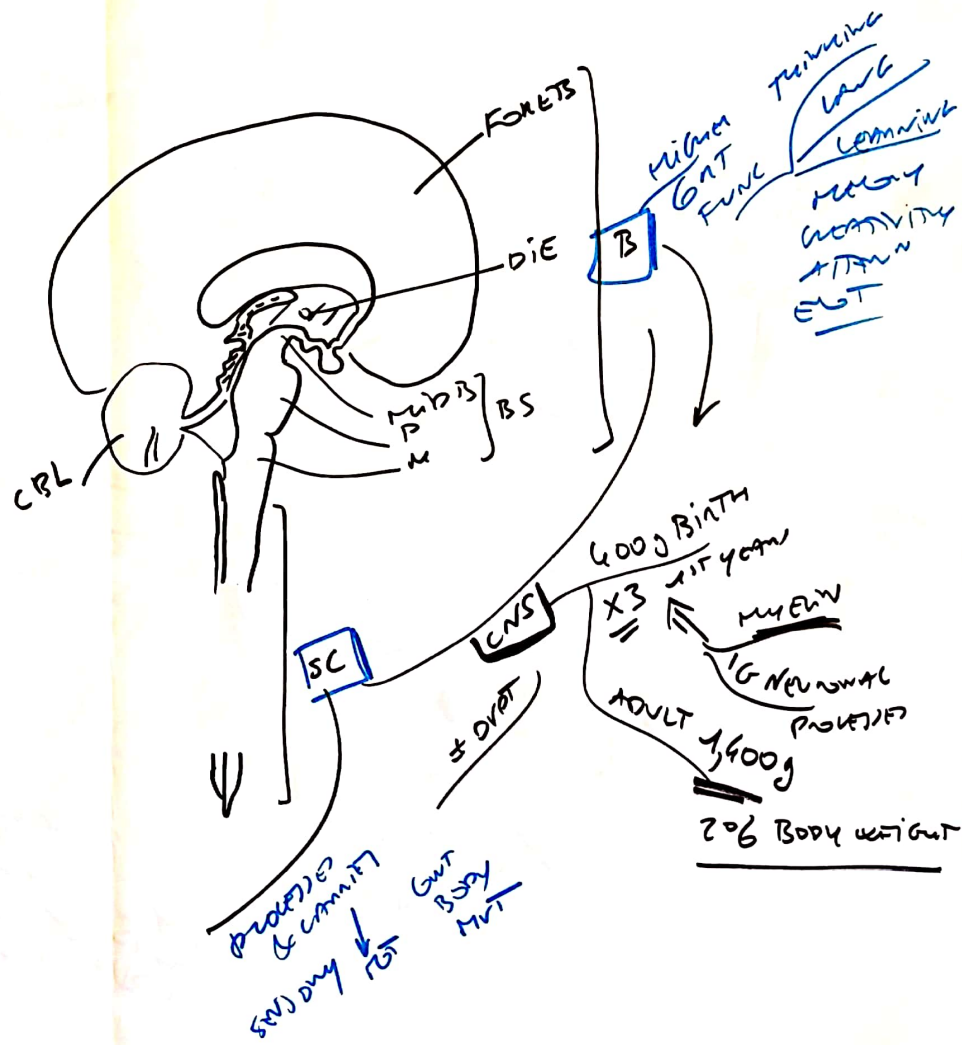 FOREB
DIE
MIDB
P
M
BS
CBL
B
HIGHER
FUNC
THINKING
LANG
LEARNING
MEMORY
CREATIVITY
EMOT
SC
CNS
400g BIRTH
X3 1ST YEAR
MYELIN
NEURONAL
PROCESSES
ADULT 1,400g
2% BODY WEIGHT
± DVPT
PROCESSES
& CARRIES
SENSORY
BODY
MVT